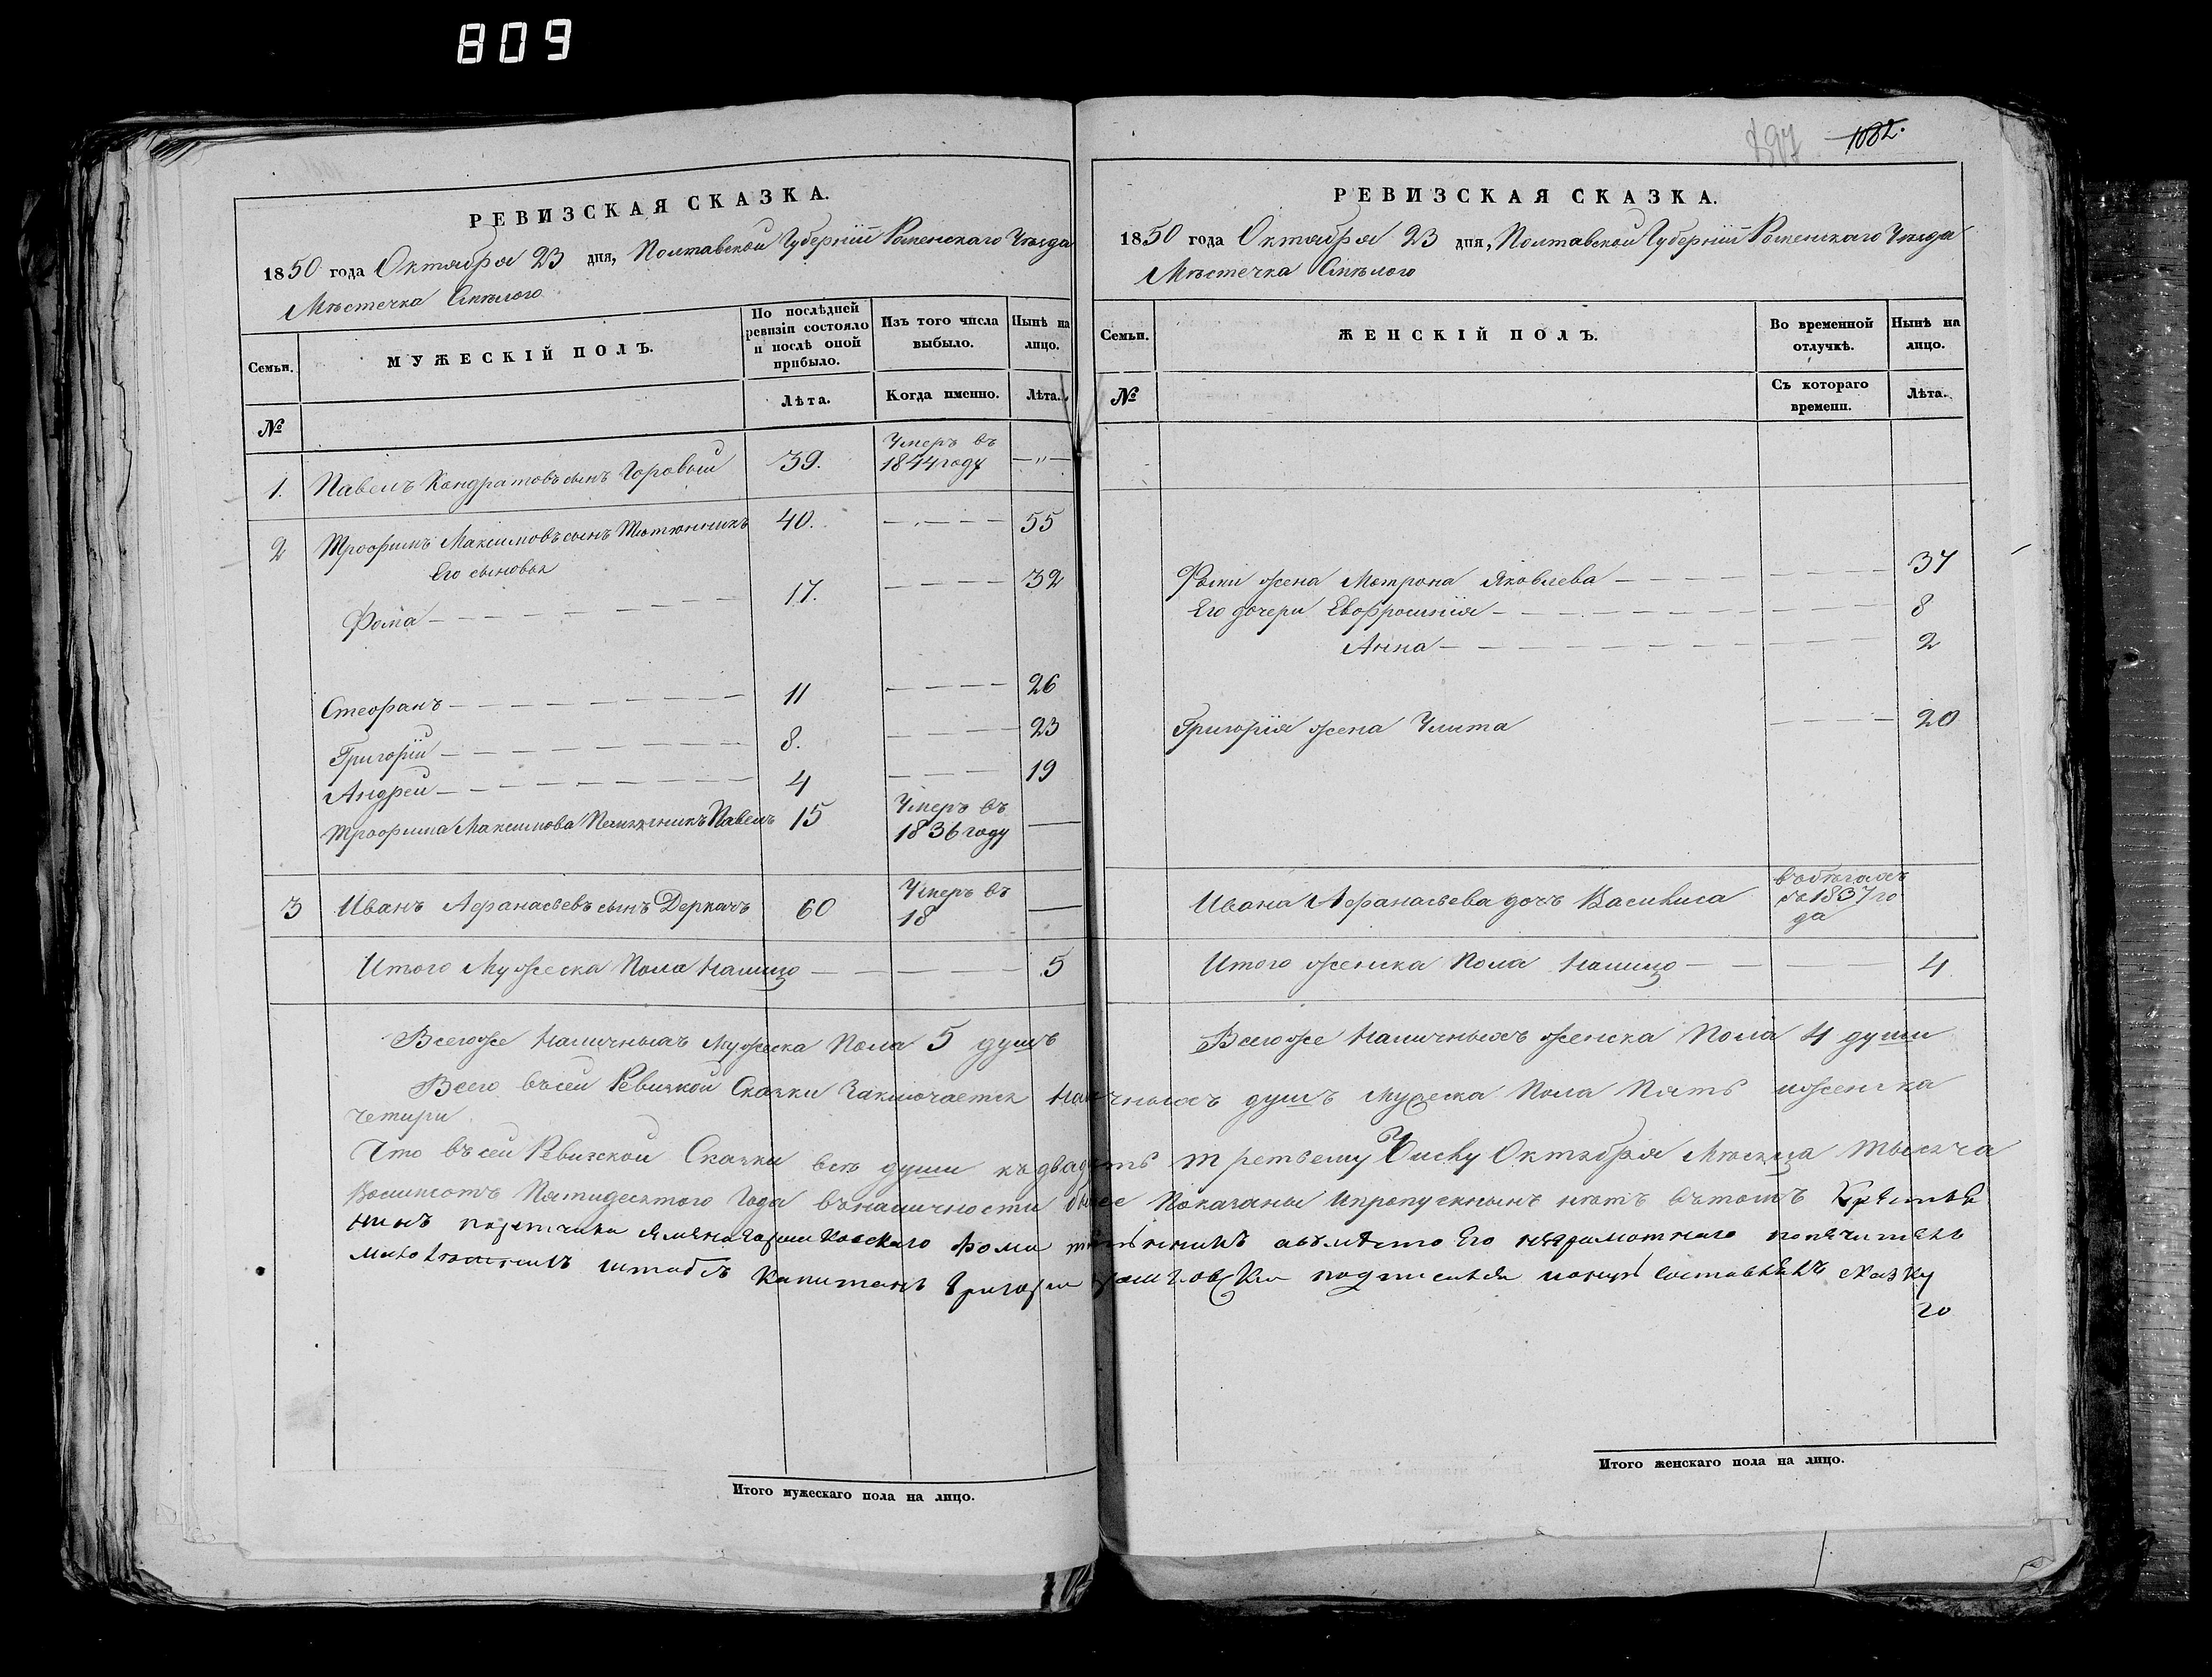 809
1082.
РЕВИЗСКАЯ СКАЗКА.
1850 года Октября 23 дня, Полтавской Губерніи Роменскаго Уѣзда
Мѣстечка Смѣлого
Семьи.
МУЖЕСКІЙ ПОЛЪ.
По послѣдней ревизіи состояло и послѣ оной прибыло.
Изъ того числа выбыло.
Нынѣ на лицо.
№
Лѣта.
Когда именно.
Лѣта.
1. Павелъ Кондратовъ сынъ Горовый 39. Умеръ въ 1844 году — „ —
2 Трофимъ Максимовъ сынъ Тютюнникъ 40. — — — 55
Его сыновья
Фома — 17. — — — 32
Стефанъ — 11 — — — 26
Григорій — 8. — — — 23
Андрей — 4 — — — 19
Трофима Максимова Племянникъ Павелъ 15 Умеръ въ 1836 году —
3 Иванъ Афанасьевъ сынъ Деркачъ 60 Умеръ въ 18 —
Итого Мужеска Пола налицо — 5
Всегоже Наличныхъ мужеска Пола 5 душъ
РЕВИЗСКАЯ СКАЗКА.
1850 года Октября 23 дня, Полтавской Губерніи Роменскаго Уѣзда
Мѣстечка Смѣлого
Семьи.
ЖЕНСКІЙ ПОЛЪ.
Во временной отлучкѣ.
Нынѣ на лицо.
№
Съ котораго времени.
Лѣта.
Фомы жена Мотрона Яковлева — — — 37
Его дочери Евфросинія — — — 8
Анна — — — 2
Григорія жена Улита — — — 20
Ивана Афанасьева дочь Василиса въ бѣгахъ съ 1837 года
Итого женска Пола налицо — 4
Всегоже Наличныхъ женска Пола 4 души
Всего въ сей Ревизкой Сказки Заключается Наличныхъ душъ мужеска Пола Пять и женска
четири
Что въ сей Ревизской Сказки всѣ души къ двадцать третьему Числу Октября Мѣсяца тысяча
Восимсотъ Пятидесятого Года въ наличности бывшее Показаны и пропускныхъ нѣтъ въ томъ
Фоми вмѣсто Его неграмотнаго
штабсъ Капитанъ Григорій подписался сказку
го
Итого мужескаго пола на лицо.
Итого женскаго пола на лицо.